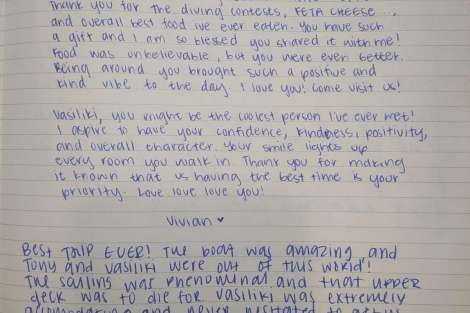 Thank you for the diving contests, FETA CHEESE...
and overall best food ive ever eaten. You have such
a gift and I am so blessed you shared it with me!
Food was unbelievable, but you were even better.
Being around you brought such a positive and
kind vibe to the day. I love you! Come visit us!
Vasiliki, you might be the coolest person I've ever met!
I aspire to have your confidence, kindness, positivity,
and overall character. Your smile lights up
every room you walk in. Thank you for making
it known that us having the best time is your
priority. Love love love you!
Vivian ♥
BEST TRIP EVER! The boat was amazing and
Tony and Vasiliki were out of this world!
The sailing was phenominal and that upper
deck was to die for Vasiliki was extremely
accomodating and never hesitated to